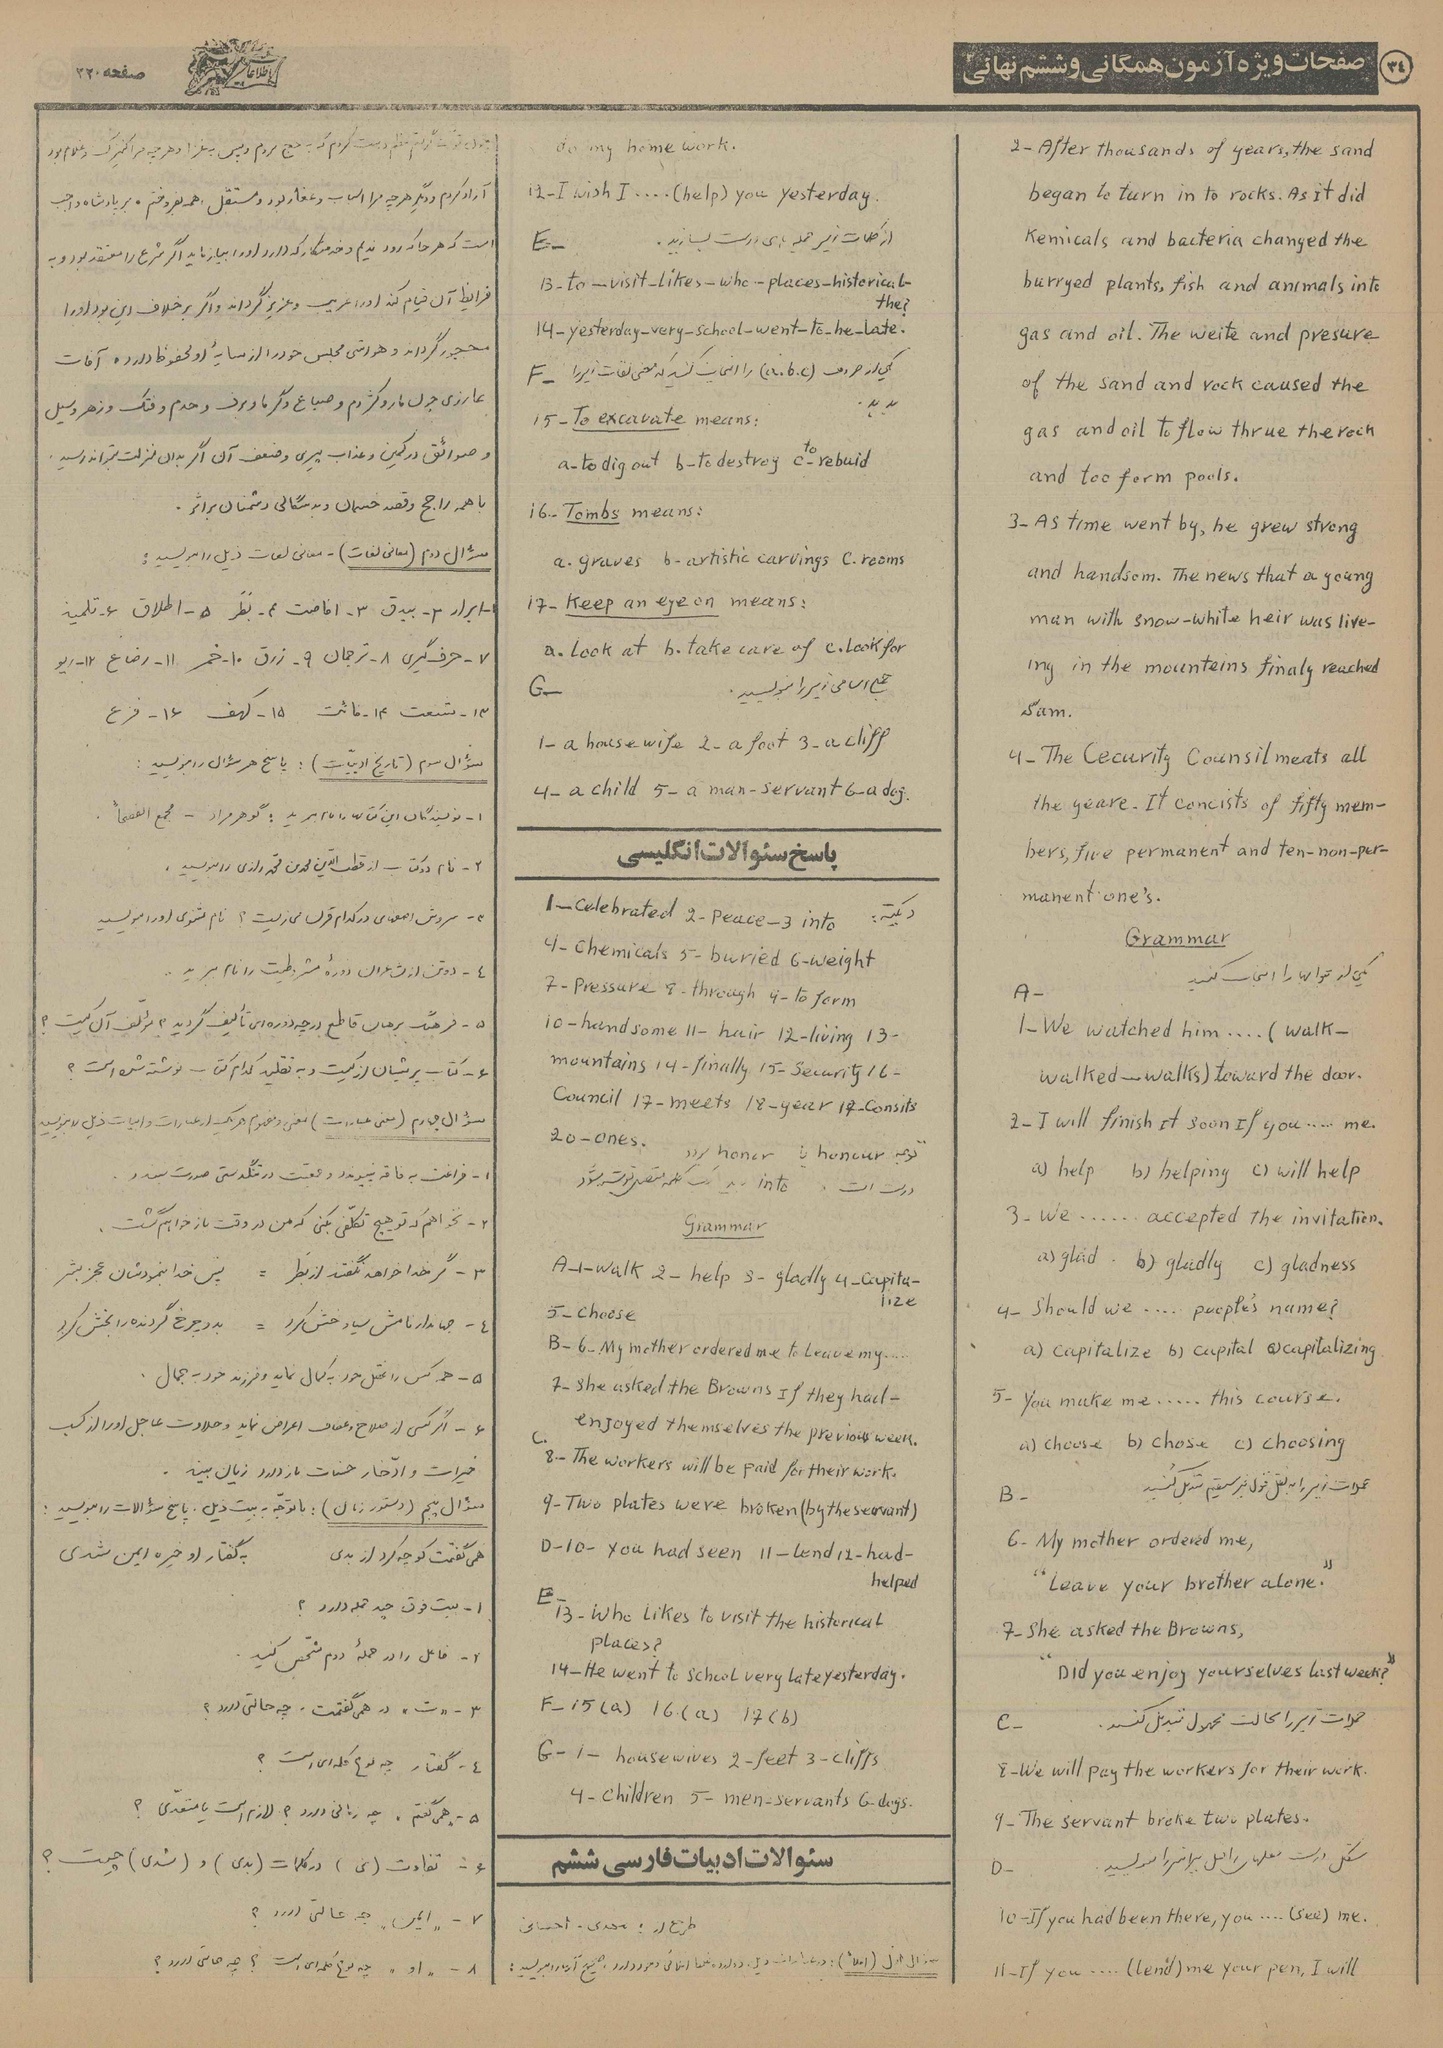 ۳۴
صفحات ویژه آزمون همگانی و ششم نهائی
صفحه ۲۲۰
2- After thousands of years, the sand
began to turn in to rocks. As it did
Kemicals and bacteria changed the
burryed plants, fish and animals into
gas and oil. The weite and presure
of the sand and rock caused the
gas and oil to flow thrue the rock
and too form pools.
3- As time went by, he grew strong
and handsom. The news that a young
man with snow-white heir was live-
ing in the mountains finaly reached
Sam.
4- The Cecurity Counsil meats all
the yeare. It concists of fifty mem-
bers, five permanent and ten-non-per-
manent one's.
Grammar
یکی از جوابها را انتخاب کنید
A-
1- We watched him .... ( walk-
walked-walks) toward the door.
2- I will finish it soon If you ..... me.
a) help b) helping c) will help
3- We ...... accepted the invitation.
a) glad b) gladly c) gladness
4- Should we .... people's name?
a) capitalize b) capital c) capitalizing
5- You make me ..... this course.
a) choose b) chose c) choosing
جملات زیر را به نقل قول غیر مستقیم تبدیل کنید
B-
6- My mother ordered me,
"Leave your brother alone."
7- She asked the Browns,
"Did you enjoy yourselves last week?"
C- جملات زیر را بحالت مجهول تبدیل کنید.
8- We will pay the workers for their work.
9- The servant broke two plates.
D- شکل درست فعلهای داخل پرانتز را بنویسید.
10- If you had been there, you .... (see) me.
11- If you .... (lend) me your pen, I will
do my home work.
12- I wish I .... (help) you yesterday.
E- از کلمات زیر جمله های درست بسازید.
13- to-visit-likes-who-places-historical-
the?
14- yesterday-very-school-went-to-he-late.
F- یکی از حروف (a.b.c) را انتخاب کنید که معنی لغات زیر را
بدهد.
15- To excavate means:
a- to dig out b- to destroy c- to rebuid
16- Tombs means:
a. graves b- artistic carvings c. rooms
17- Keep an eye on means:
a. Look at b. take care of c. Look for
G- جمع اسامی زیر را بنویسید.
1- a housewife 2- a foot 3- a cliff
4- a child 5- a man-servant 6- a dog.
پاسخ سئوالات انگلیسی
دیکته: 1- celebrated 2- peace-3 into
4- chemicals 5- buried 6- weight
7- pressure 8- through 9- to form
10- handsome 11- hair 12- living 13-
mountains 14- finally 15- Security 16-
Council 17- meets 18- year 19- Consits
20- ones.
توجه honour یا honor
درست است. into
Grammar
A-1- walk 2- help 3- gladly 4- Capita-
lize
5- choose
B- 6- My mother ordered me to leave my ....
7- She asked the Browns If they had-
enjoyed themselves the previous week.
C.
8- The workers will be paid for their work.
9- Two plates were broken (by the servant)
D-10- you had seen 11- lend 12- had-
helped
E-
13- Who likes to visit the historical
places?
14- He went to school very late yesterday.
F- 15 (a) 16.(a) 17 (b)
G- 1- housewives 2- feet 3- cliffs
4- children 5- men-servants 6- dogs.
سئوالات ادبیات فارسی ششم
آزاد کردم و دیگر هرچه مرا اسباب و عقار بود و مستقل، همه بفروختم. بر پادشاه واجب
است که هر جا که رود ندیم و خدمتکار که دارد او را بیازماید اگر شرع را معتقد بود و به
فرایض آن قیام کند او را قریب و عزیز گرداند و اگر برخلاف این بود او را
مهجور گرداند و حواشی مجلس خود را از سایهٔ او محفوظ دارد. آفات
عارضی چون مار و کژدم و صباع و گرما و برف و هدم و فتک و زهر و سیل
و صواعق در کمین و عذاب پیری و ضعف آن اگر بدان منزلت بتواند رسید.
با همه راجح و قصد خصمان و بدسگالی دشمنان برابر.
سؤال دوم (معانی لغات) - معانی لغات ذیل را بنویسید:
۱- ابرار ۲- بیدق ۳- افاضت ۴- بَطَر ۵- اطلاق ۶- تلمیذ
۷- حرف گیری ۸- ترجمان ۹- زرق ۱۰- خمر ۱۱- رضاع ۱۲- ریو
۱۳- تبعت ۱۴- فائت ۱۵- کهف ۱۶- فزع
سؤال سوم (تاریخ ادبیّات): پاسخ هر سؤال را بنویسید:
۱- نویسندگان این کتابها را نام ببرید: گوهر مراد - مجمع الفصحا.
۲- نام دو کتاب از قطب الدّین محمد بن محمّد رازی را بنویسید.
۳- سروش اصفهانی در کدام قرن می زیست؟ نام مثنوی او را بنویسید
۴- دو تن از شاعران دورهٔ مشروطیت را نام ببرید.
۵- فرهنگ برهان قاطع در چه دوره ای تألیف گردید؟ مؤلّف آن کیست؟
۶- کتاب پریشان از کیست و به تقلید کدام کتاب نوشته شده است؟
سؤال چهارم (معنی عبارات) معنی و مفهوم هر یک از عبارات و ابیات ذیل را بنویسید
۱- فراغت به فاقه نپیوندد و جمعیت در تنگدستی صورت نبندد.
۲- نخواهم که تو هیچ تکلّفی بکنی که من در وقت باز خواهم گشت.
۳- گر خدا خواهد نگفتند از بَطَر = پس خدا بنمودشان عجز بشر
۴- جهاندار نامش سیاوخش کرد = بدو چرخ گردنده را بخش کرد
۵- همه کس را عقل خود به کمال نماید و فرزند خود به جمال.
۶- اگر کسی از صلاح و عفاف اعراض نماید و حلاوت عاجل او را از کسب
خیرات و ادّخار حسنات باز دارد زیان بیند.
سؤال پنجم (دستور زبان): با توجّه به بیت ذیل، پاسخ سؤالات را بنویسید:
همی گفتمت کوچه کرد از بدی به گفتار او خیره ایمن شدی
۱- بیت فوق چند جمله دارد؟
۲- فاعل را در جملهٔ دوم مشخّص کنید.
۳- «ت» در همی گفتمت، چه حالتی دارد؟
۴- گفتار چه نوع کلمه ای است؟
۵- همی گفتم، چه زمانی دارد؟ لازم است یا متعدّی؟
۶- تفاوت (ی) در کلمات (بدی) و (شدی) چیست؟
۷- «ایمن» چه حالتی دارد؟
۸- «او» چه نوع کلمه ای است؟ چه حالتی دارد؟